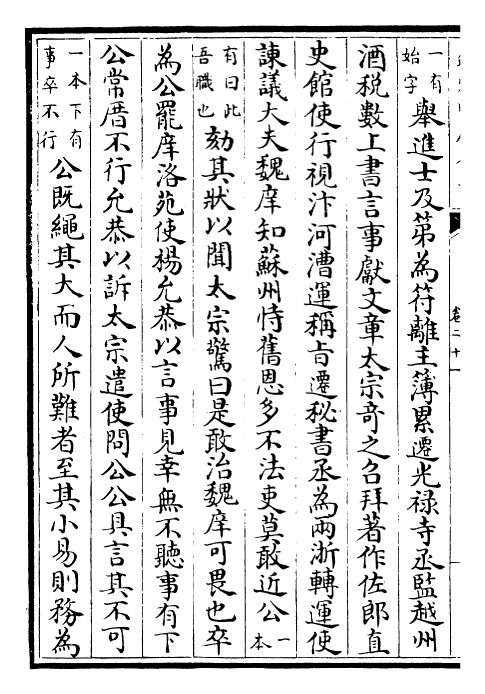 一有始字舉進士及第為符離主簿累遷光禄寺丞監越州
酒税數上書言事獻文章太宗竒之召拜著作佐郎直
史館使行視汴河漕運稱㫖遷秘書丞為兩浙轉運使
諫議大夫魏庠知蘇州恃舊恩多不法吏莫敢近公一本
有曰此吾職也劾其狀以聞太宗驚曰是敢治魏庠可畏也卒
為公罷庠洛苑使楊允恭以言事見幸無不聽事有下
公常厝不行允恭以訴太宗遣使問公公具言其不可
一本下有事卒不行公既繩其大而人所難者至其小易則務為
卷二十一